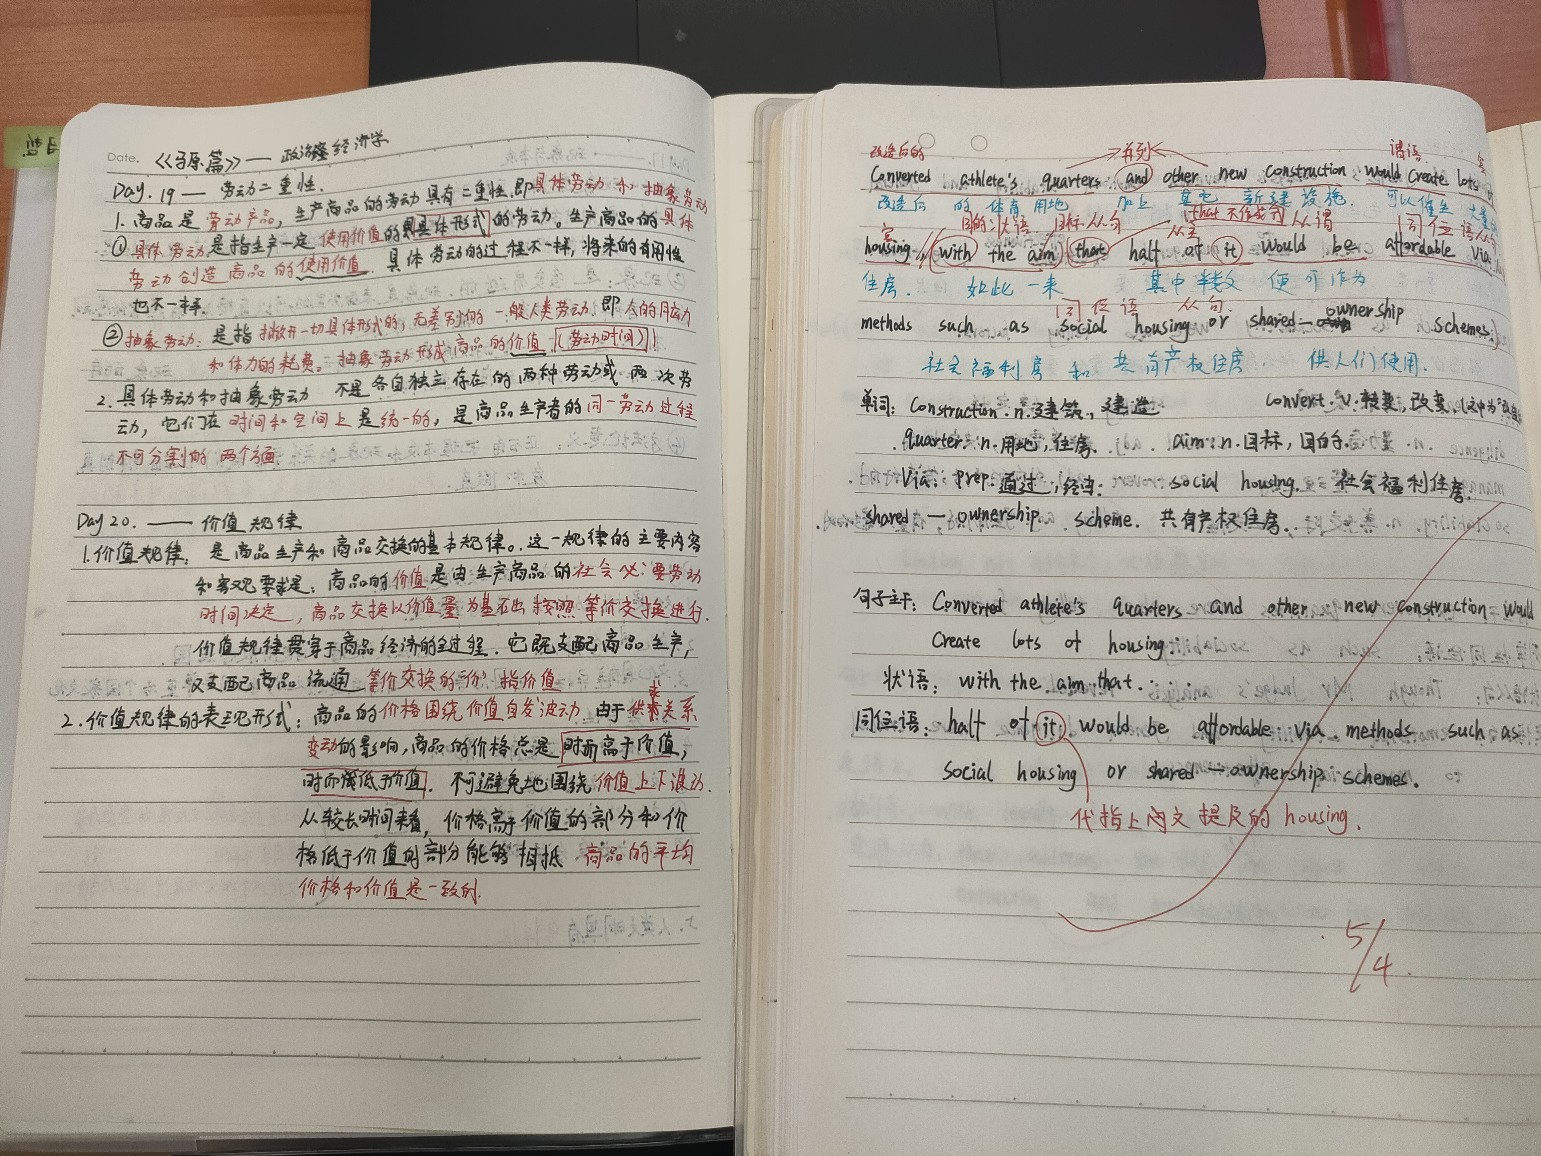 Date. 《马原篇》— 政治经济学
Day. 19 — 劳动二重性.
1. 商品是 劳动产品, 生产商品的劳动具有二重性.即具体劳动 和 抽象劳动
①具体劳动是指生产一定 使用价值的具体形式的劳动。生产商品的具体
劳动创造 商品的使用价值 具体劳动的过程不一样,将来的有用性
也不一样.
②抽象劳动: 是指 撇开一切具体形式的,无差别的一般人类劳动,即 人的脑力
和体力的耗费。抽象劳动形成商品的价值 (劳动时间)
2. 具体劳动和抽象劳动 不是各自独立存在的两种劳动或 两次劳
动, 它们在 时间和空间上是统一的, 是商品生产者的同一劳动过程
不可分割的两个方面.
Day 20. —— 价值规律
1. 价值规律, 是商品生产和商品交换的基本规律。这一规律的主要内容
和客观要求是: 商品的价值是由生产商品的社会必要劳动
时间决定, 商品交换以价值量为基础 按照等价交换进行.
价值规律贯穿于商品经济的全过程. 它既支配商品生产,
又支配商品流通 等价交换的“价”指价值
2. 价值规律的表现形式: 商品的价格围绕价值自发波动. 由于供求关系
变动的影响,商品的价格总是 时而高于价值,
时而低于价值. 不可避免地围绕价值上下波动.
从较长时间来看, 价格高于价值的部分和价
格低于价值的部分能够相抵 商品的平均
价格和价值是一致的.
改造后的 并列 谓语 宾
Converted athlete's quarters and other new construction would create lots of
改造后 的 体育 用地 加上 其它 新建设施. 可以催生 大量
目的状语 目标从句 that 不作成分 从主 从谓 同位语从句
宾
housing // (with the aim) (that) half of (it) would be affordable via
住房. 如此一来 其中半数 便可作为
同位语 从句.
methods such as social housing or shared-ownership schemes.
社会福利房 和 共有产权住房 供人们使用.
单词: construction. n. 建筑, 建造 convert. v. 转变, 改变,
quarter. n. 用地, 住房. aim: n. 目标, 目的.
via: prep. 通过, 经由: social housing. 社会福利住房.
shared-ownership scheme. 共有产权住房.
句子主干: Converted athlete's quarters and other new construction would
create lots of housing
状语: with the aim that.....
同位语: half of (it) would be affordable via methods such as
social housing or shared-ownership schemes.
代指上文提及的 housing.
5/4.